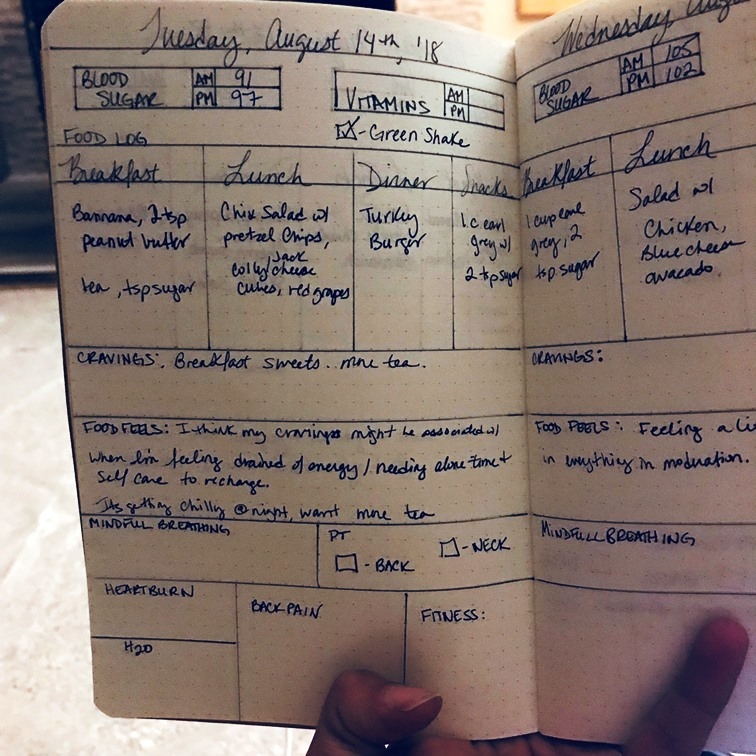 Tuesday, August 14th, '18
BLOOD SUGAR AM 91
PM 97
VITAMINS AM
PM
FOOD LOG
☑ - Green Shake
Breakfast
Bannana, 2 tsp
peanut butter
tea, tsp sugar
Lunch
Chix Salad w/
pretzel Chips,
Jack
colby cheese
cubes, red grapes
Dinner
Turkey
Burger
Snacks
1 c earl
grey w/
2 tsp sugar
CRAVINGS: Breakfast sweets.. more tea.
FOOD FEELS: I think my cravings might be associated w/
when I'm feeling drained of energy / needing alone time +
Self care to recharge.
Its getting chilly @ night, want more tea
MINDFULL BREATHING
PT
☐ - BACK
☐ - NECK
HEARTBURN
H20
BACK PAIN
FITNESS:
Wednesday
BLOOD SUGAR AM 105
PM 102
Breakfast
1 cup earl
grey, 2
tsp. sugar
Lunch
Salad w/
Chicken,
Blue cheese
avacado.
CRAVINGS:
FOOD FEELS: Feeling a
in everything in moderation.
MINDFULL BREATHING